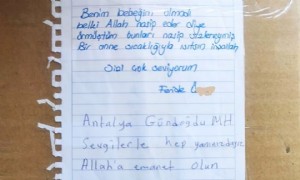 Benim bebeğim olmadı
belki Allah nasip eder diye
örmüştüm bunları nasip sizleneymiş
Bir anne sıcaklığıyla ısıtsın inşallah
Sizi çok seviyorum
Feride
Antalya Gündoğdu MH.
Sevgilerle hep yanınızdayız
Allah'a emanet olun